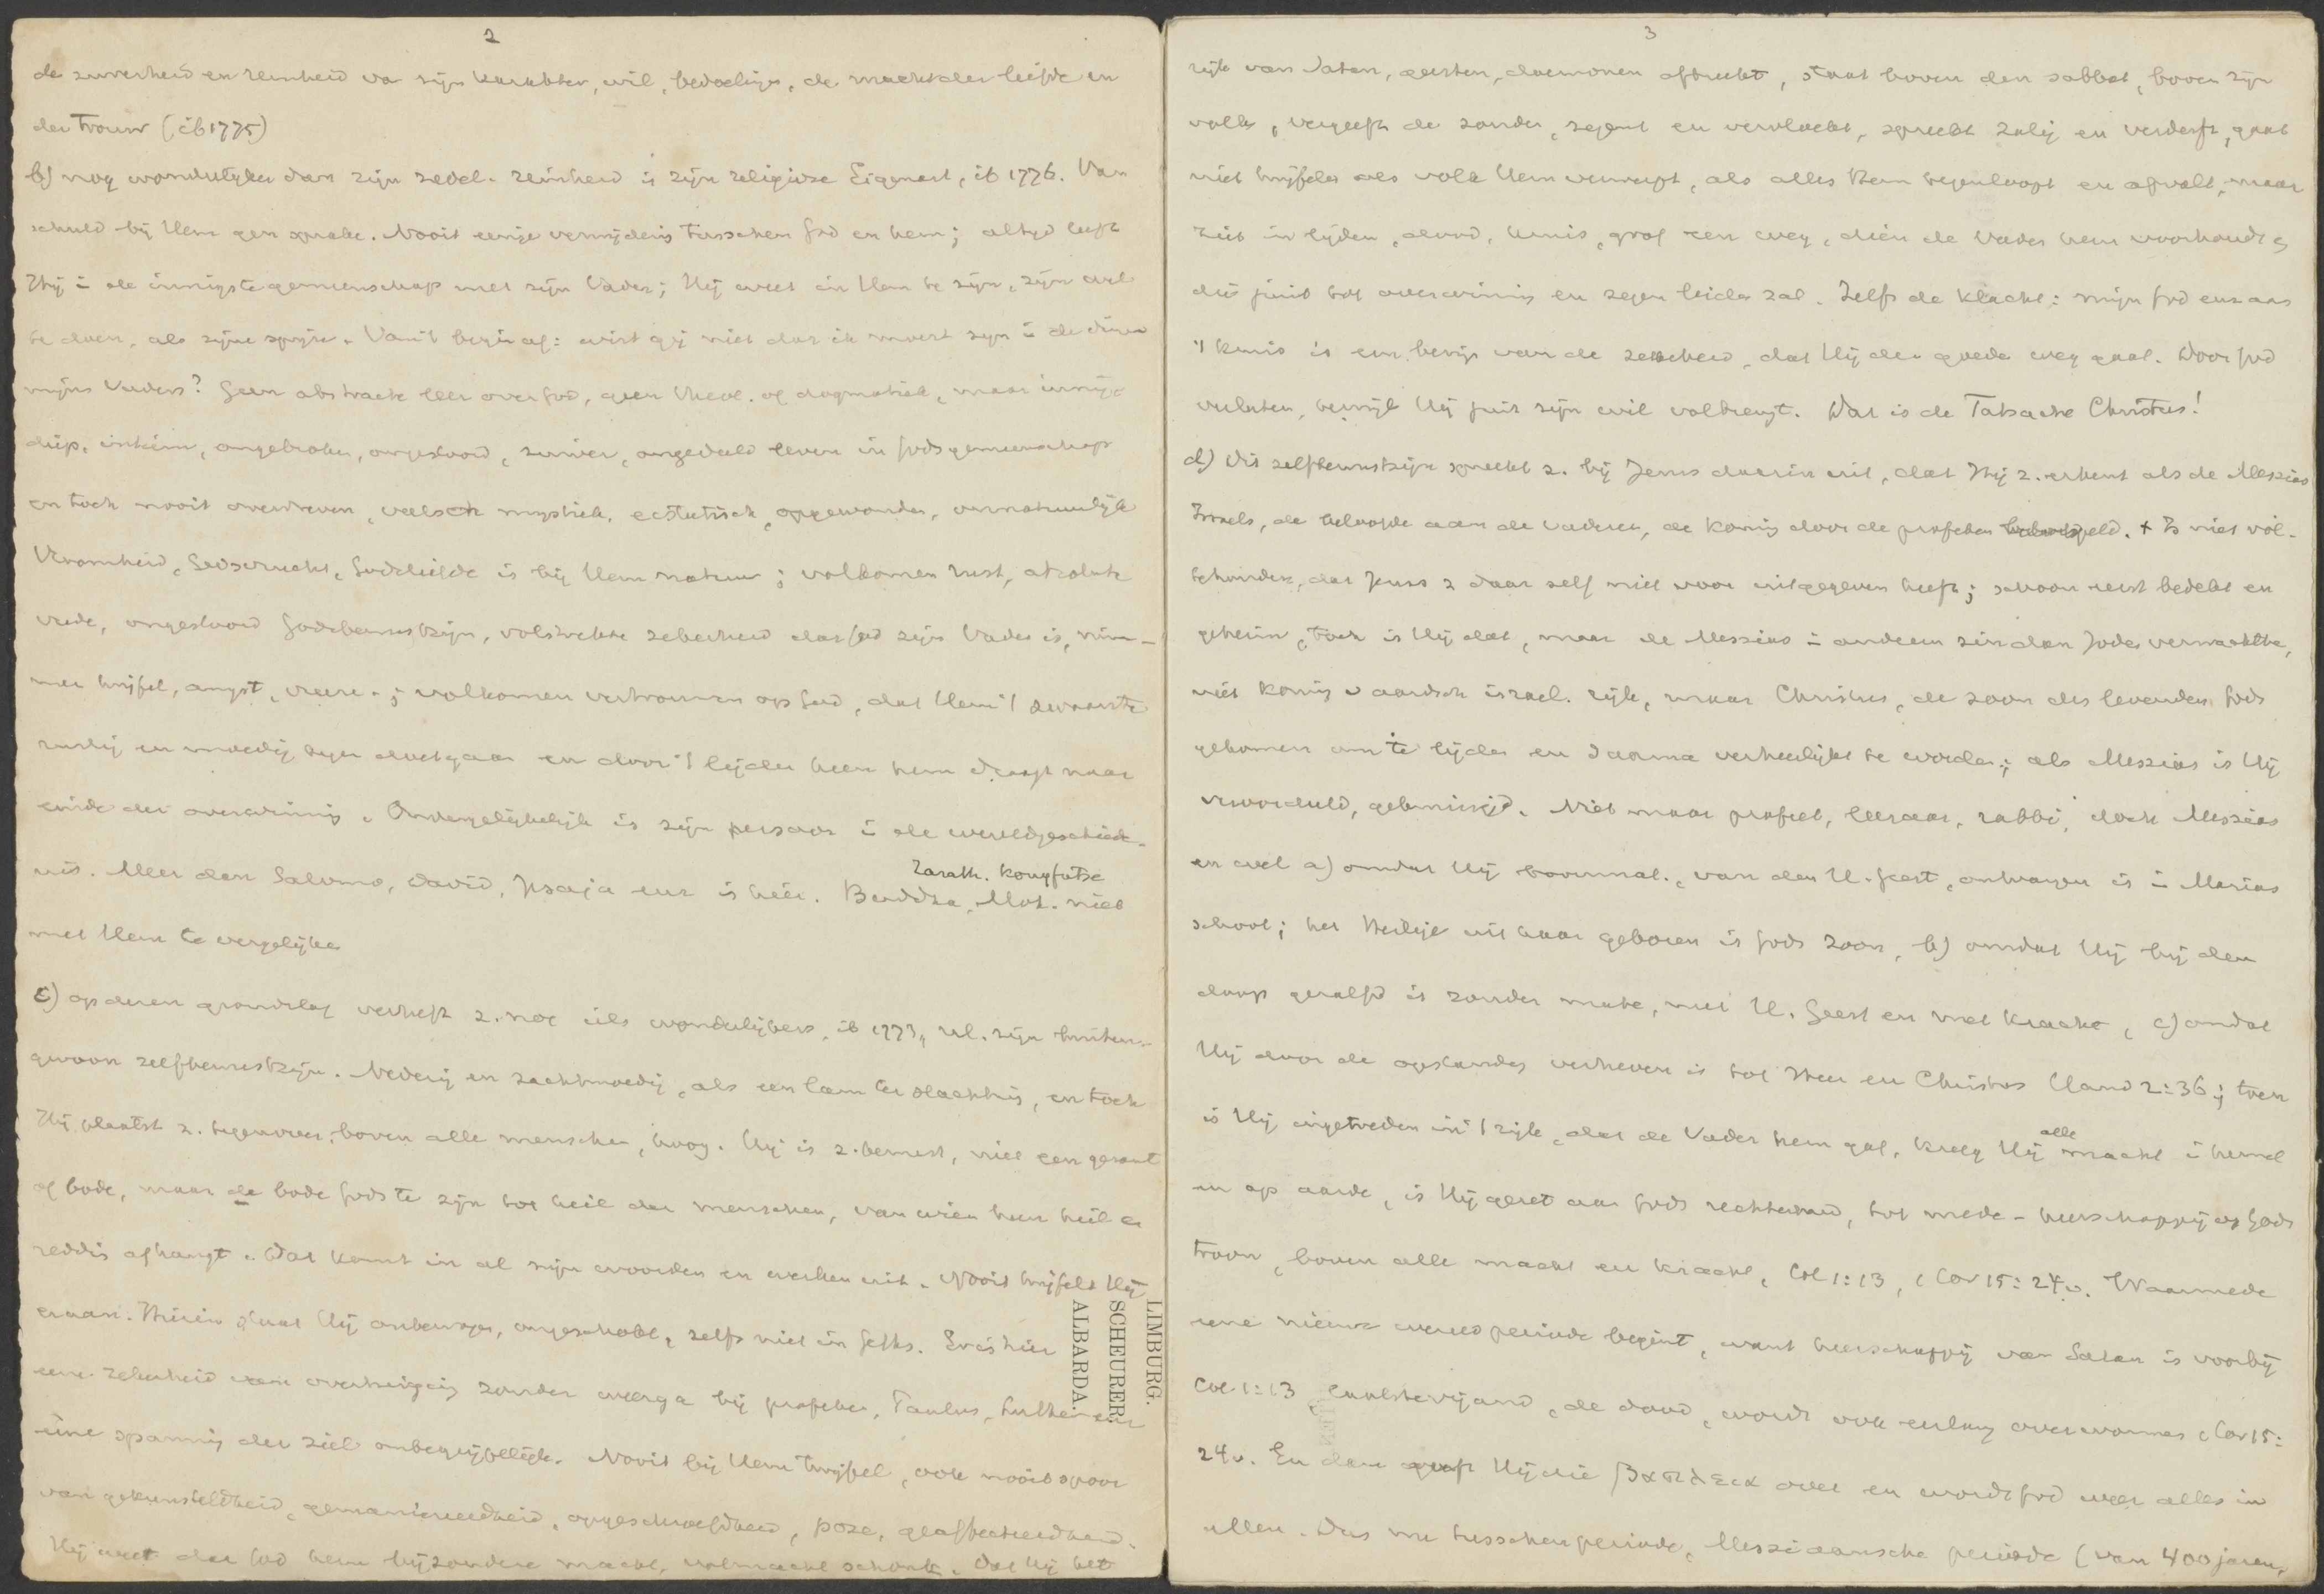 2
de zuiverheid en reinheid van zijn karakter, wil, bedoelingen, de macht der liefde en
der trouw (ib 1775)
b) nog wonderlijker dan zijn zedel. reinheid is zijn religieuze Eigenart, ib 1776. Van
schuld bij Hem geen sprake. Nooit eenige verwijdering tusschen God en hem; altijd leeft
Hij in de innigste gemeenschap met zijn Vader; Hij weet in Hem te zijn, zijn wil
te doen, als zijne spijze. Van 't begin af: wist gij niet dat ik moest zijn in de dingen
mijns Vaders? Geen abstracte leer over God, geen theol. of dogmatiek, maar innig
diep, intiem, ongebroken, ongestoord, zuiver, leven in Gods gemeenschap
en toch nooit overdreven, valsch mystiek, ecstatisch, opgewonden, onnatuurlijk
Vroomheid, Godsvrucht, Godsliefde is bij Hem natuur; volkomen rust, absolute
vrede, ongestoord Godsbewustzijn, volstrekte zekerheid dat God zijn Vader is, nim-
mer twijfel, angst, vreeze; volkomen vertrouwen op God, dat Hem 't zwaarste
rustig en moedig tegen doet gaan en door 't lijden heen hem draagt naar
einde der overwinning. Onvergelijkelijk is zijn persoon in de wereldgeschiede-
nis. Meer dan Salomo, David, Jesaja enz is hier. Buddha, Moh. niet
Zarath. Kongfutse
met Hem te vergelijken
c) op dezen grondslag verheft z. nog iets wonderlijkers, ib 1777, nl. zijn buiten-
gewoon zelfbewustzijn. Nederig en zachtmoedig, als een lam ter slachting, en toch
Hij plaatst z. tegenover, boven alle menschen, hoog. Hij is z. bewust, niet een gezant
of bode, maar de bode Gods te zijn tot heil der menschen, van wien hun heil en
redding afhangt. Dat komt in al zijn woorden en werken uit. Nooit twijfelt Hij
eraan. Hierin staat Hij onbewogen, ongeschokt, zelfs niet in Geths. Er is hier
eene zekerheid eene overtuiging zonder weerga bij profeten, Paulus, Luther enz
eine spanning der ziel onbegrijpelijk. Nooit bij Hem twijfel, ook nooit spoor
van gekunsteldheid, gemaniereerdheid, opgeschroefdheid, pose, geaffecteerdheid.
Hij weet dat God hem bijzondere macht, volmacht schonk. Dat Hij het
LIMBURG.
SCHEURER.
ALBARDA.
3
rijk van Satan, geesten, daemonen afbreekt, staat boven den sabbat, boven zijn
volk, vergeeft de zonden, zegent en vervloekt, spreekt zalig en verderft, gaat
niet twijfelen als volk Hem verwerpt, als alles Hem tegenloopt en afvalt, maar
ziet in lijden, dood, kruis, graf een weg, dien de Vader hem voorhoudt en
die juist tot overwinning en zegen leiden zal. Zelfs de klacht: mijn God enz aan
't kruis is een bewijs van de zekerheid, dat Hij den goede weg gaat. Door God
verlaten, terwijl Hij juist zijn wil volbrengt. Dat is de Tatsache Christus!
d) Dit zelfbewustzijn spreekt z. bij Jezus daarin uit, dat Hij z. erkent als de Messias
Israels, de beloofde aan de vaderen, de koning door de profeten voorspeld. + Is niet vol-
te houden, dat Jezus z daar zelf niet voor uitgegeven heeft; schoon eerst bedekt en
geheim, toch is Hij dat, maar de Messias in anderen zin dan Joden verwachtte,
niet koning v aardsch israel. rijk, maar Christus, de zoon des levenden Gods
gekomen om te lijden en daarna verheerlijkt te worden; als Messias is Hij
veroordeeld, gekruisigd. Niet maar profeet, leeraar, rabbi, doch Messias
en wel a) omdat Hij bovennat., van den H. Geest, ontvangen is in Marias
schoot; het Heilige uit haar geboren is Gods Zoon, b) omdat Hij bij den
doop gezalfd is zonder mate, met H. Geest en met kracht, c) omdat
Hij door de opstanding verheven is tot Heer en Christus Hand 2:36; toen
is Hij ingetreden in 't rijk, dat de Vader hem gaf, kreeg Hij alle macht in hemel
en op aarde, is Hij gezet aan Gods rechterhand, tot mede-heerschappij op Gods
troon, boven alle macht en kracht, Col 1:13, 1 Cor 15:24v. Waarmede
eene nieuwe wereldperiode begint, want heerschappij van Satan is voorbij
Col 1:13 laatste vijand, de dood, wordt ook eerlang overwonnen 1 Cor 15:
24v. En dan geeft Hij die βασιλεια over en wordt God weer alles in
allen. Dus nu tusschenperiode, Messiaansche periode (van 400 jaren,